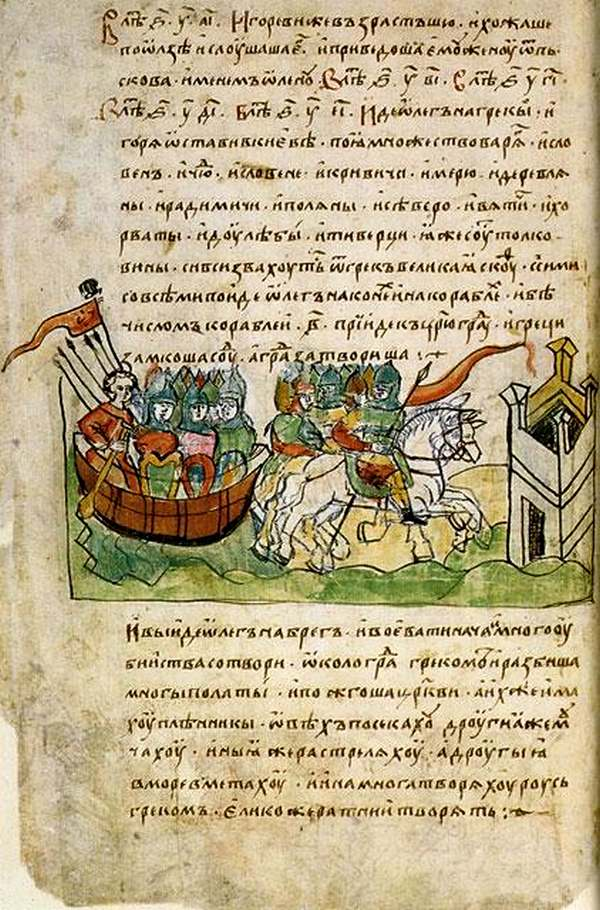 В лѣ҃т ҂ѕ҃. у҃. а҃і. Игоревиже възрастъшю. ихожаше
поѡлзѣ ислоушашаег҃. иприведошаемоуженоу ѿпь
скова. именемъ ѡленоу. В лѣ҃т ҂ѕ҃. у҃. в҃і. В лѣ҃т ҂ѕ҃. у҃. г҃і.
В лѣ҃т ҂ѕ҃. у҃. д҃і. В лѣ҃т ҂ѕ҃. у҃. е҃і. Идеѡлегънагрекы. и
горяѡставивкиевѣ. поꙗмножествоварѧг. исло
венъ. ичю. исловене. икривичи. имерю. идеревлѧ
ны. ирадимичи. иполѧны. исѣверо. ивѧтичи. ихо
рваты. идоулѣбы. итиверци. ꙗжесоутьтолко
вины. сивсизвахоутьс ѿгрекъвеликаꙗскоуф. ссими
совсѣмипоиде ѡлегънаконехинакораблех. ибѣ
числомъкораблеи. в҃. приидекцрюграду. игреци
замкошасоуд. аградзатвориша
ивыидеѡлегънабрегъ. ивоеватинача. имногооу
бииствасотвори. ѡкологрда грекомъ. иразбиша
многыполаты. ипожгошацркви. аихжеима
хоуплѣнникы. ѡвѣхъпосекаху. дроугиꙗжемоу
чахоу. иныꙗжерастрелѧхоу. адроугыꙗ
вморевметахоу. иинамноготворѧхоуроусь
грекомъ. еликожератниитворѧть